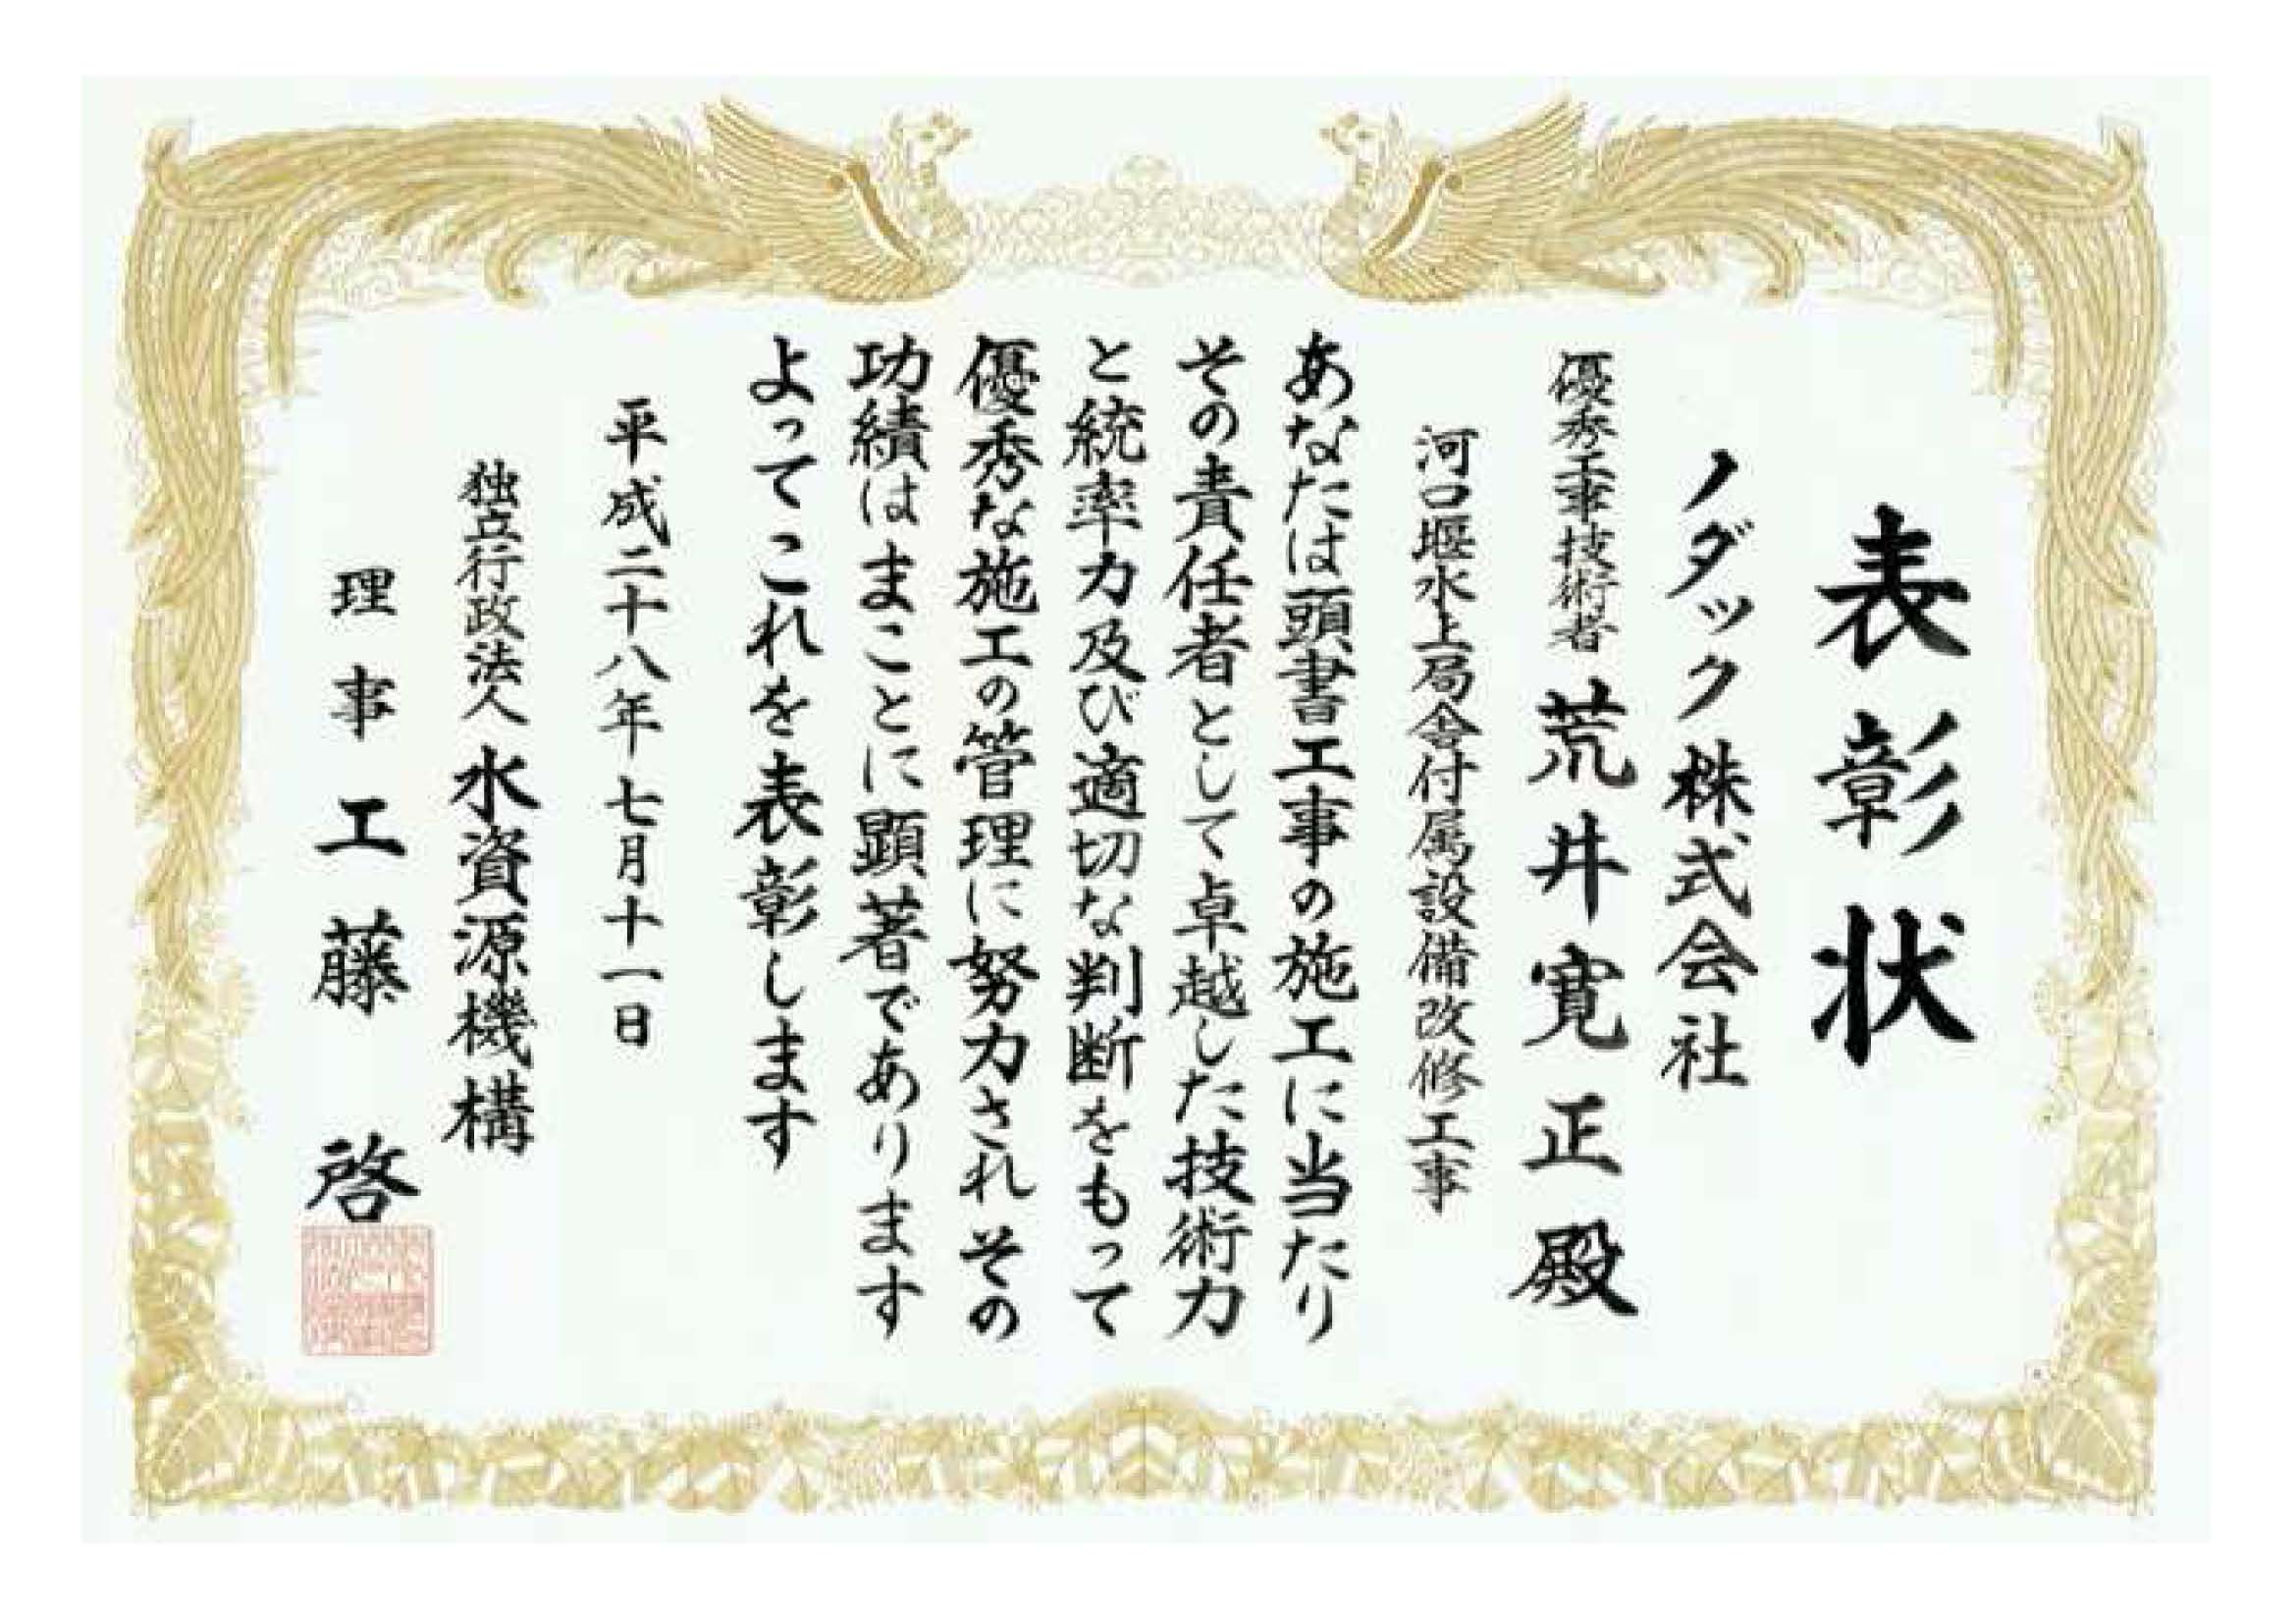 表彰状
ノダック株式会社
優秀工事技術者 荒井寛正殿
河口堰水上局舎付属設備改修工事
あなたは頭書工事の施工に当たり
その責任者として卓越した技術力
と統率力及び適切な判断をもって
優秀な施工の管理に努力されその
功績はまことに顕著であります
よってこれを表彰します
平成二十八年七月十一日
独立行政法人水資源機構
理事工藤 啓